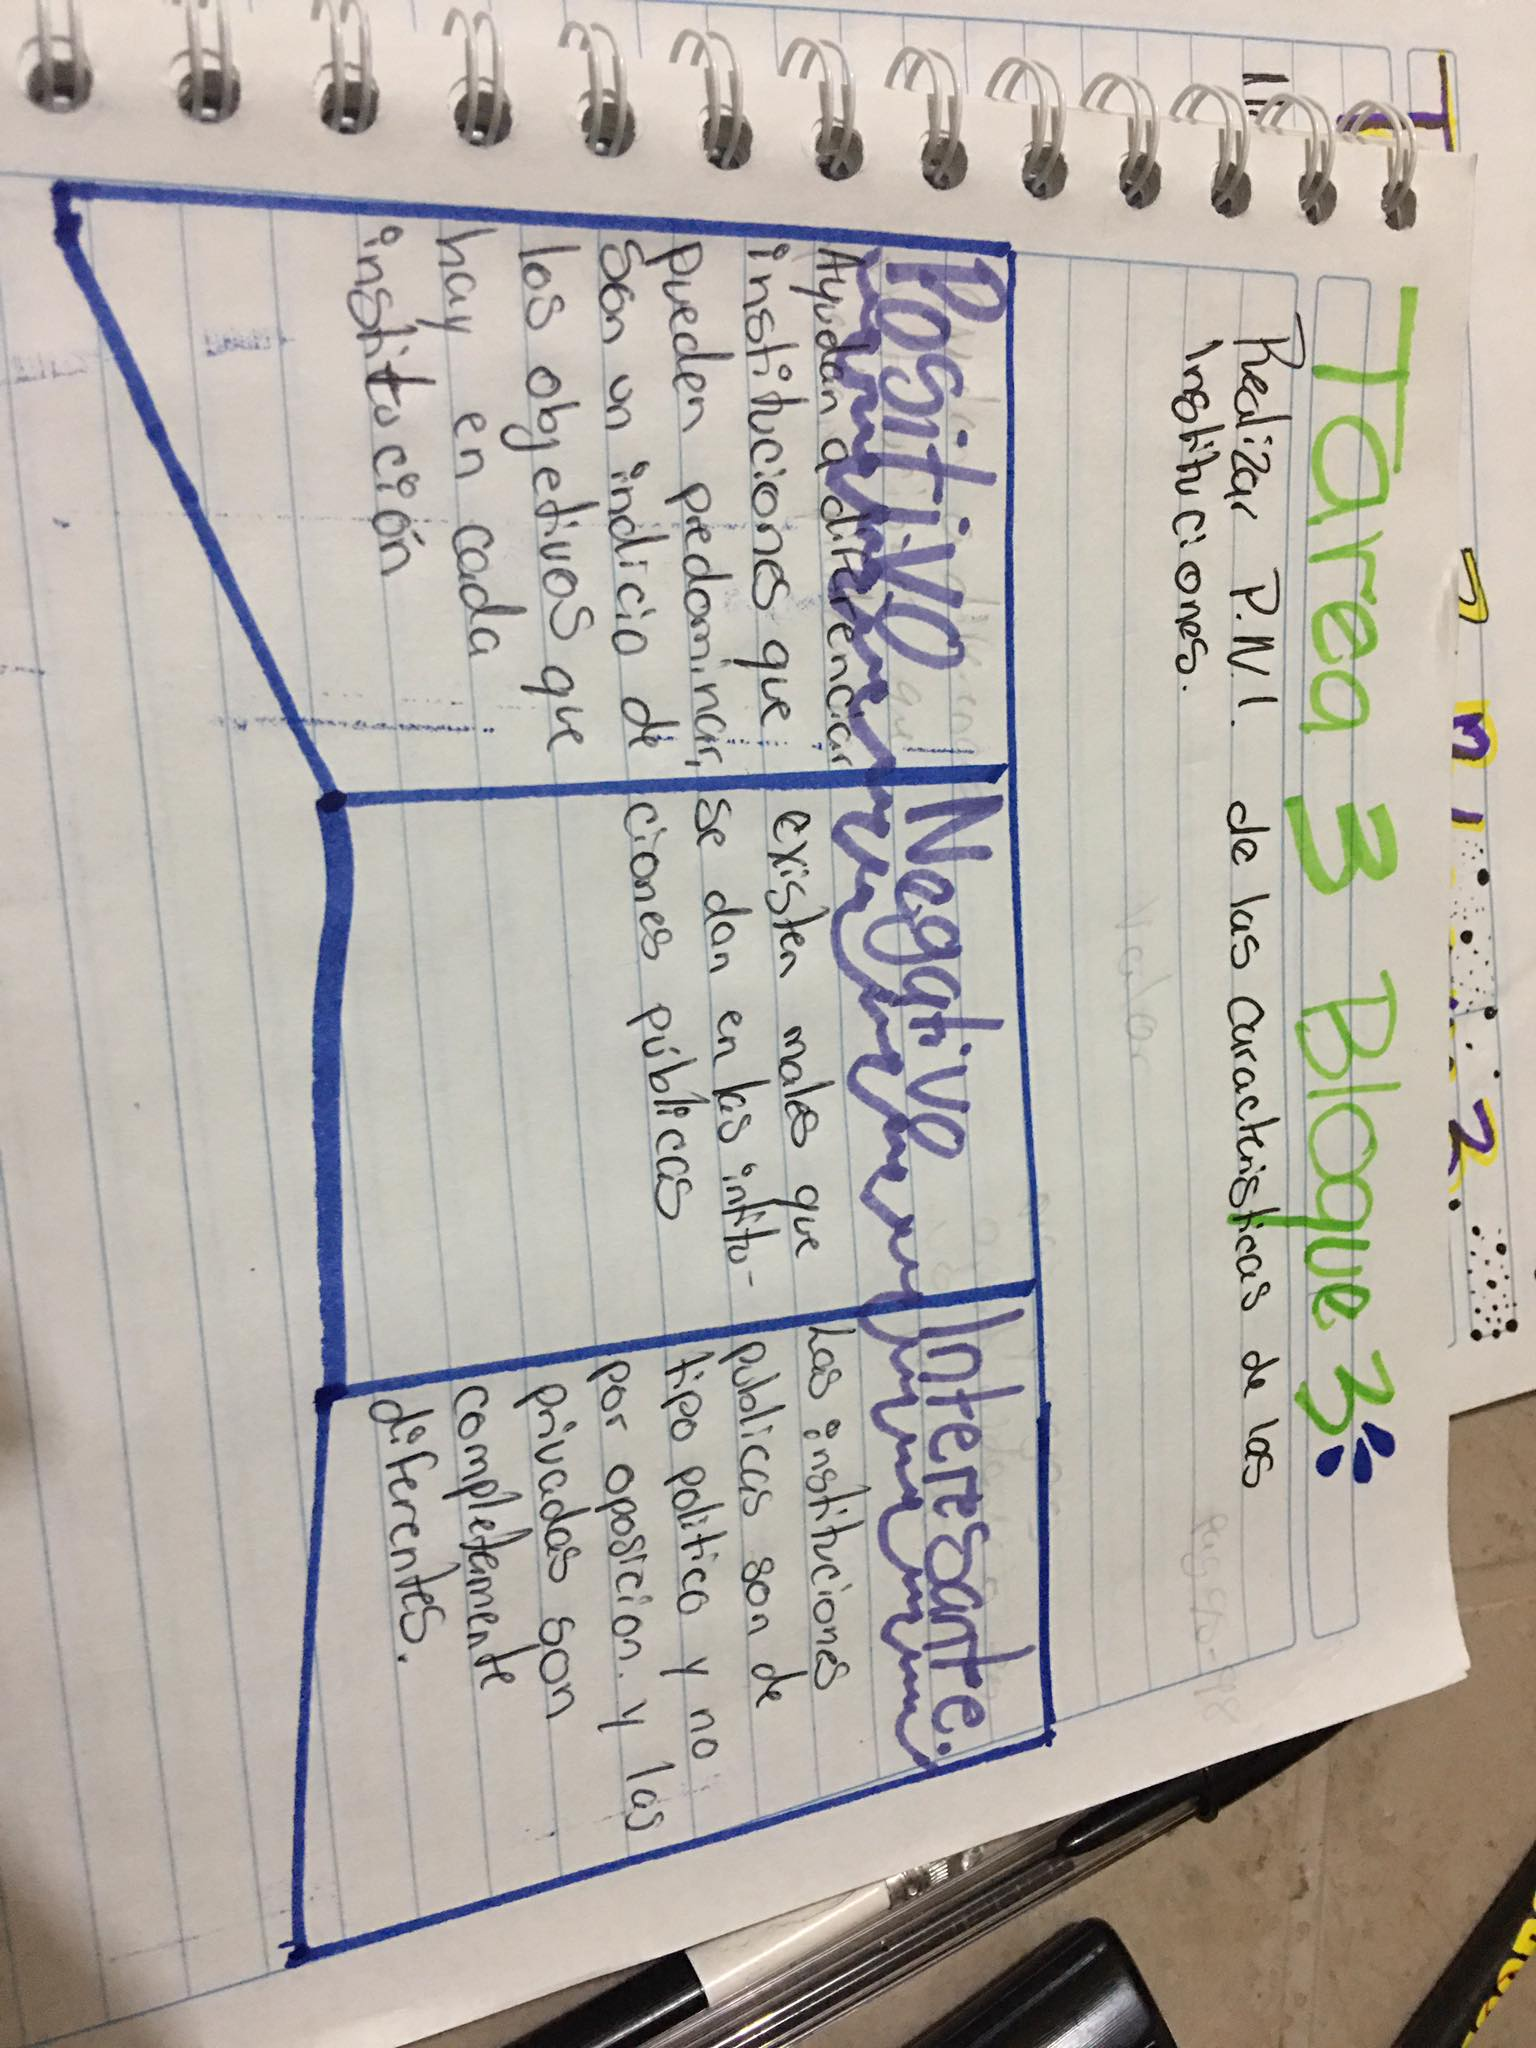 Tarea 3 Bloque 3
Realizar P.N.I. de las caracteristicas de las
Instituciones.
Positivo
Ayudan a diferenciar
instituciones que
pueden predominar,
son un indicio de
los objetivos que
hay en cada
institución
Negativo
existen males que
se dan en las intitu-
ciones públicas
Interesante.
Las instituciones
publicas son de
tipo politico y no
por oposicion. y las
privadas son
completamente
diferentes.